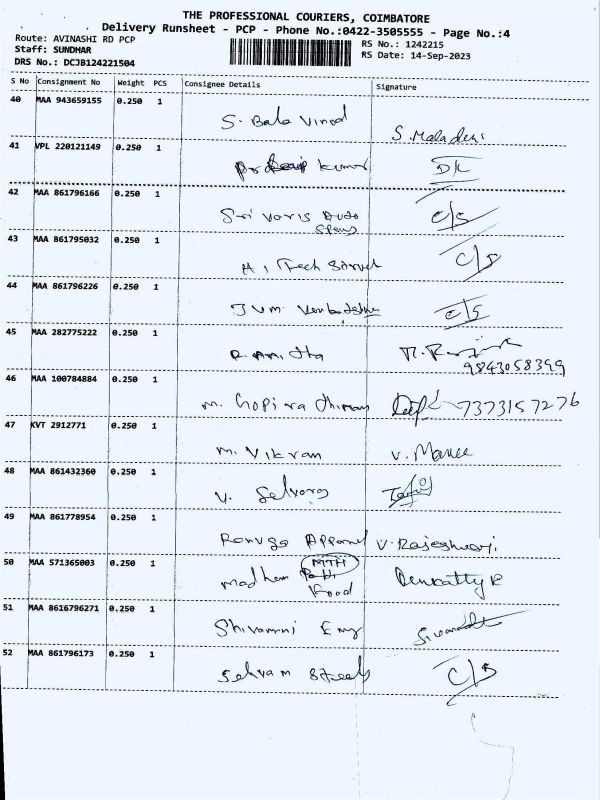 THE PROFESSIONAL COURIERS, COIMBATORE
Delivery Runsheet - PCP - Phone No.:0422-3505555 - Page No.:4
Route: AVINASHI RD PCP
RS No.: 1242215
Staff: SUNDHAR
RS Date: 14-Sep-2023
DRS No.: DCJB124221504
S No Consignment No Weight PCS Consignee Details Signature
40 MAA 943659155 0.250 1 S. Bala Vinod S. Maladevi
41 VPL 220121149 0.250 1 kumar DK
42 MAA 861796166 0.250 1 Sri Varis Auto C/S
43 MAA 861795032 0.250 1 Hi Tech C/S
44 MAA 861796226 0.250 1 JVM C/S
45 MAA 282775222 0.250 1 R. Anitha
9843058399
46 MAA 100784884 0.250 1 M. Gopinathiman 7373157276
47 KVT 2912771 0.250 1 M. Vikram V. Manee
48 MAA 861432360 0.250 1 V. Selvaraj
49 MAA 861778954 0.250 1 Renuga Apparel V. Rajeshwari
50 MAA 571365003 0.250 1 Madham MTH
Food
51 MAA 8616796271 0.250 1 Shivamni Eng
52 MAA 861796173 0.250 1 Selvam Steels C/S